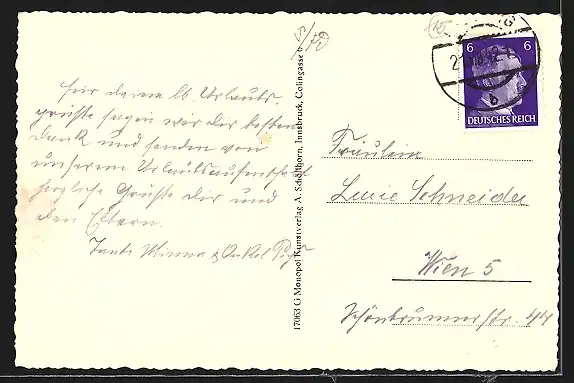 Für deine lb Urlaubs-
grüße sagen wir dir besten
Dank und senden von
unserem Urlaubsaufenthalt
herzliche Grüße dir und
den Eltern.
Tante Minna & Onkel
17063 G Monopol Kunstverlag A. Schöllhorn, Innsbruck, Colingasse 6
6 6
DEUTSCHES REICH
b
Fräulein
Lucie Schneider
Wien 5
Schönbrunnerstr. 44